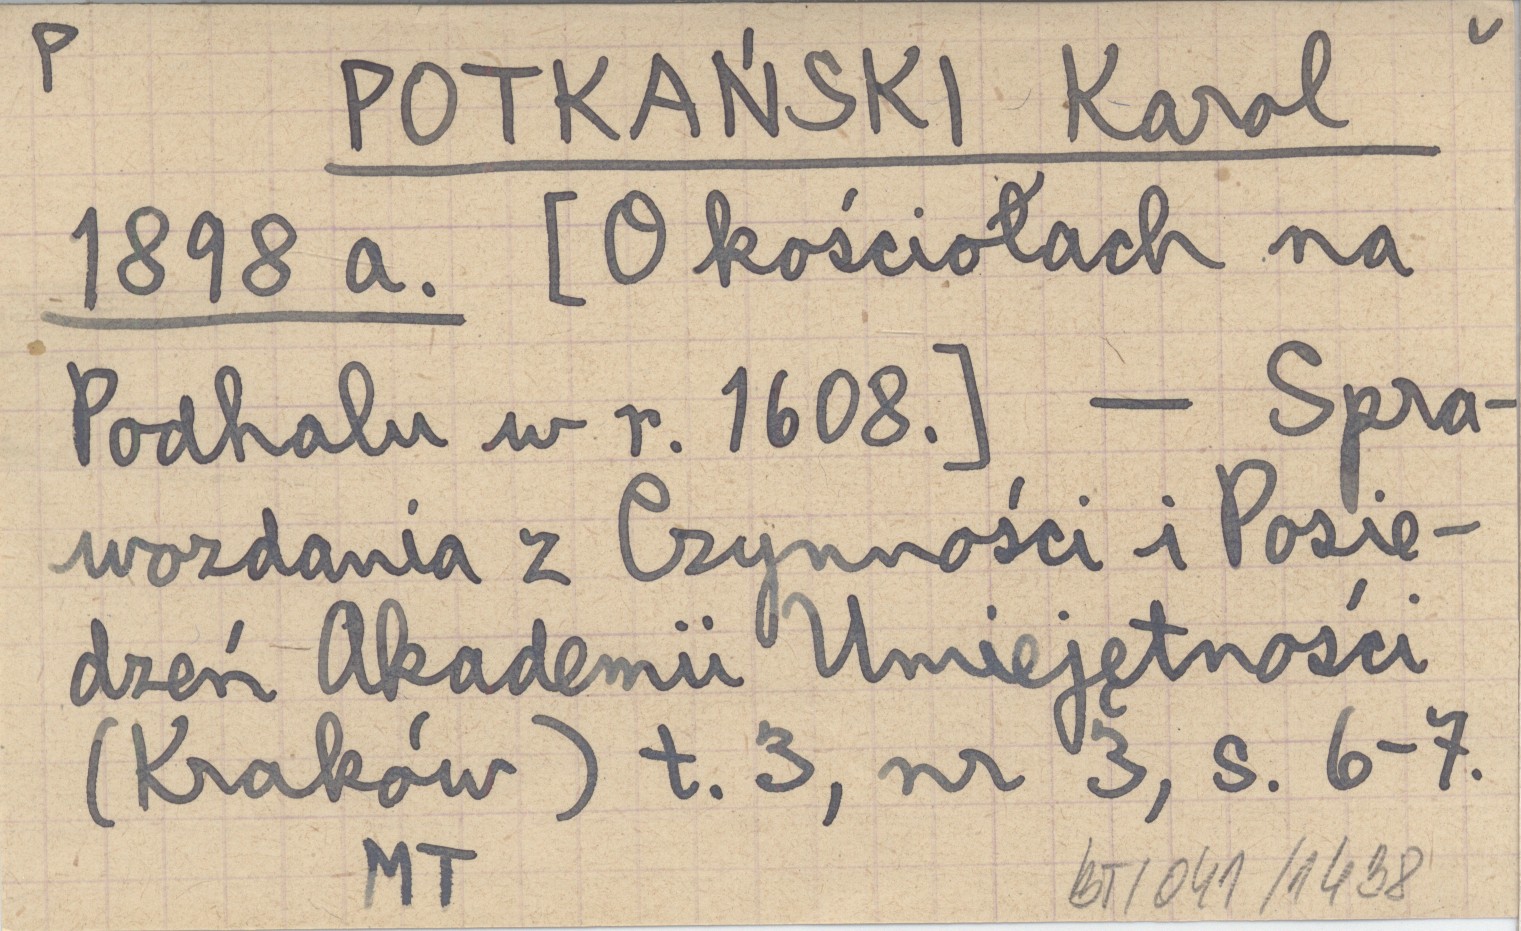 P
POTKAŃSKI Karol
1898 a. [O kościołach na
Podhalu w r. 1608.] — Spra-
wozdania z Czynności i Posie-
dzeń Akademii Umiejętności
(Kraków) t. 3, nr 3, s. 6-7.
MT
BT/041/1438